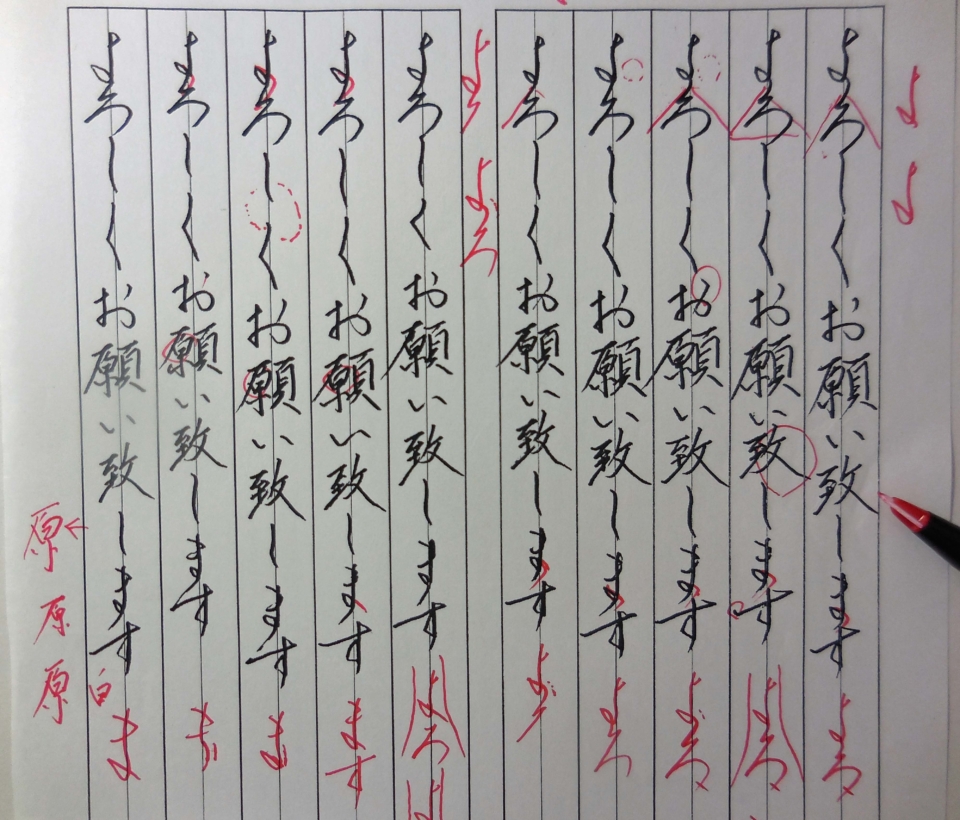 よ
よ
よろしくお願い致します
よろ
よろしくお願い致します
よろ
よろしくお願い致します
よろ
よろしくお願い致します
よろ
よろしくお願い致します
よろ
よろ
よろしくお願い致します
よろ
よろしくお願い致します
ます
よろしくお願い致します
ま
よろしくお願い致します
よろしくお願い致します
白
ま
原
原
原